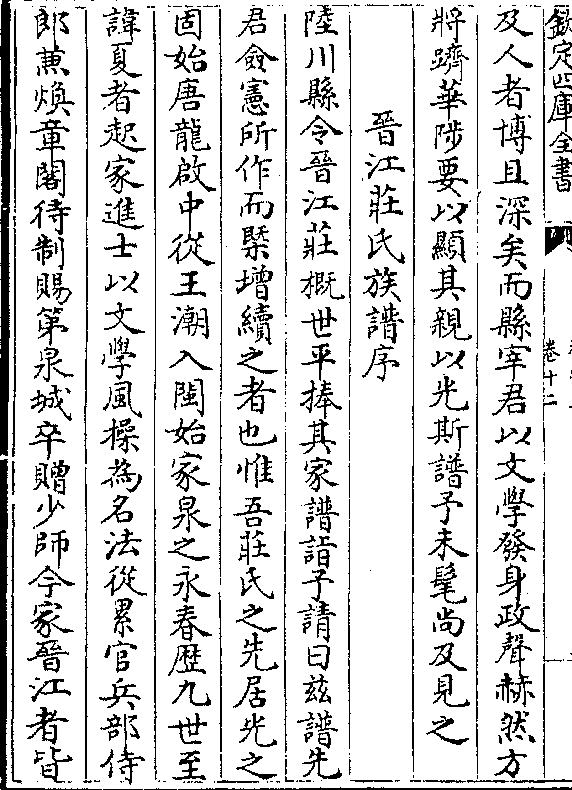 欽定四庫全書
卷十二
及人者博且深矣而縣宰君以文學發身政聲赫然方
將躋華陟要以顯其親以光斯譜予未髦尚及見之
晉江莊氏族譜序
陸川縣令晉江莊概世平捧其家譜詣予請曰茲譜先
君僉憲所作而槩增續之者也惟吾莊氏之先居光之
固始唐龍啟中從王潮入閩始家泉之永春歷九世至
諱夏者起家進士以文學風操為名法從累官兵部侍
郎蕉煥章閣待制賜第泉城卒贈少師今家晉江者皆